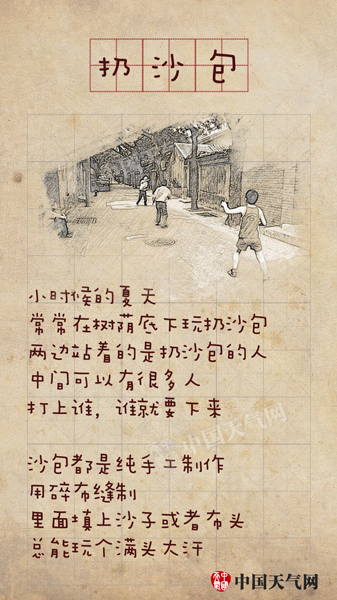 扔沙包
小时候的夏天
常常在树荫底下玩扔沙包
两边站着的是扔沙包的人
中间可以有很多人
打上谁，谁就要下来
中国天气网
沙包都是纯手工制作
用碎布缝制
里面填上沙子或者布头
总能玩个满头大汗
中国天气网